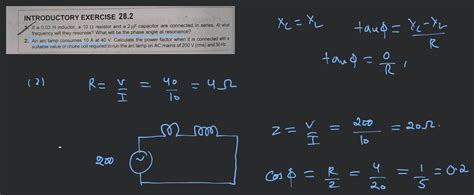 INTRODUCTORY EXERCISE 28.2
1. If a 0.03 H inductor, a 10 Ω resistor and a 2 μF capacitor are connected in series. At what
frequency will they resonate? What will be the phase angle at resonance?
2. An arc lamp consumes 10 A at 40 V. Calculate the power factor when it is connected with a
suitable value of choke coil required to run the arc lamp on AC mains of 200 V (rms) and 50 Hz.
X_L = X_L
tanϕ = (X_L - X_L)/R
tanϕ = 0/R,
(2) R = V/I = 40/10 = 4 Ω
Z = V/I = 200/10 = 20 Ω.
200
cos ϕ = R/Z = 4/20 = 1/5 = 0.2